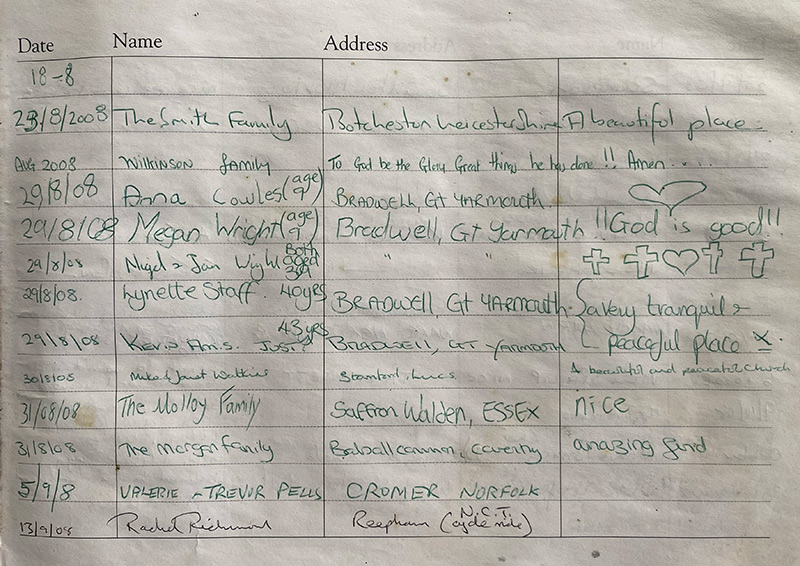 Date Name Address
18-8
23/8/2008 The Smith Family Botcheston Leicestershire A beautiful place
AUG 2008 WILKINSON family To God be the Glory Great things he has done!! Amen....
29/8/08 Anna Cowles (age 9) BRADWELL, GT YARMOUTH
29/8/08 Megan Wright (age 9) Bradwell, GT Yarmouth !!God is good!!
29/8/08 Nigel & Jan Wright Both aged 39 " "
29/8/08. Lynette Staff. 40yrs BRADWELL, GT YARMOUTH. A very tranquil &
29/8/08 Kevin Ams. JUST? 43yrs BRADWELL, GT YARMOUTH peaceful place x.
30/8/08 Mike & Janet Watkins Stamford, Lincs A beautiful and peaceful Church
31/08/08 The Molloy Family Saffron Walden, ESSEX nice
31/8/08 The Morgan family Balsall common, coventry amazing find
5/9/8 VALERIE & TREVOR PELLS CROMER NORFOLK
13/9/08 Rachel Richmond Reepham (N.C.T. cycle ride)